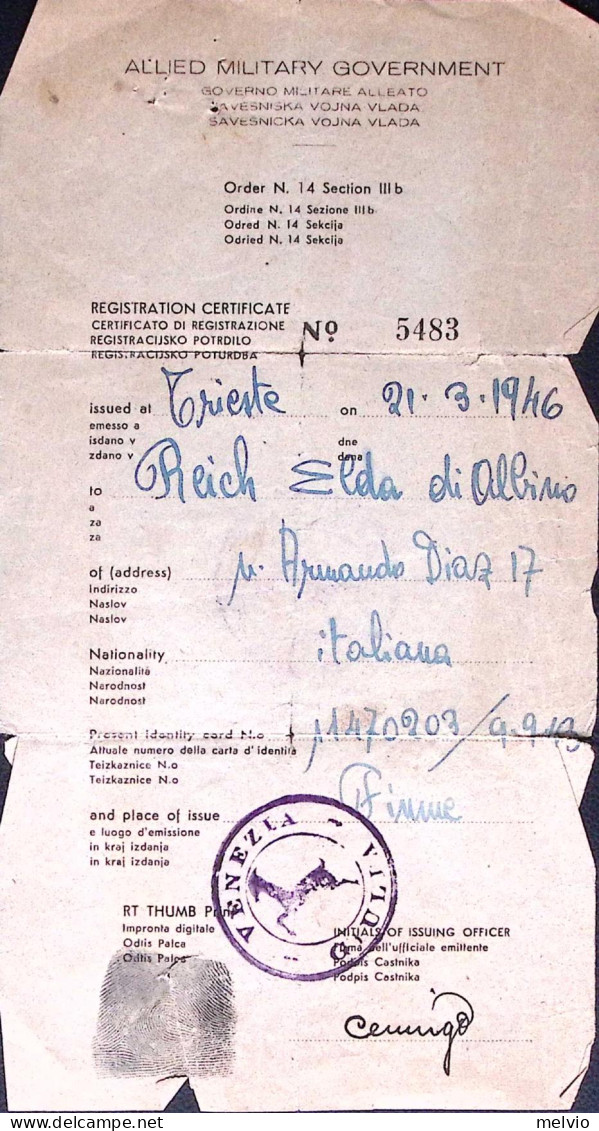 ALLIED MILITARY GOVERNMENT
GOVERNO MILITARE ALLEATO
SAVESNISKA VOJNA VLADA
SAVESNICKA VOJNA VLADA
Order N. 14 Section IIIb
Ordine N. 14 Sezione IIIb
Odred N. 14 Sekcija
Odried N. 14 Sekcija
REGISTRATION CERTIFICATE
CERTIFICATO DI REGISTRAZIONE
REGISTRACIJSKO POTRDILO
REGISTRACIJSKO POTURDBA
No 5483
issued at Trieste on 21.3.1946
emesso a
isdano v dne
zdano v dana
to Reich Elda di Albino
a
za
za
of (address) v. Armando Diaz 17
Indirizzo
Naslov
Naslov
Nationality italiana
Nazionalità
Narodnost
Narodnost
Present identity card N.o 11470203/9.9.43
Attuale numero della carta d'identità
Teizkaznice N.o
Teizkaznice N.o
and place of issue Fiume
e luogo d'emissione
in kraj izdanja
in kraj izdanja
VENEZIA GIULIA
RT THUMB Print
Impronta digitale
Odtis Palca
Odtis Palca
INITIALS OF ISSUING OFFICER
Firma dell'ufficiale emittente
Podpis Castnika
Podpis Castnika
delcampe.net
melvio